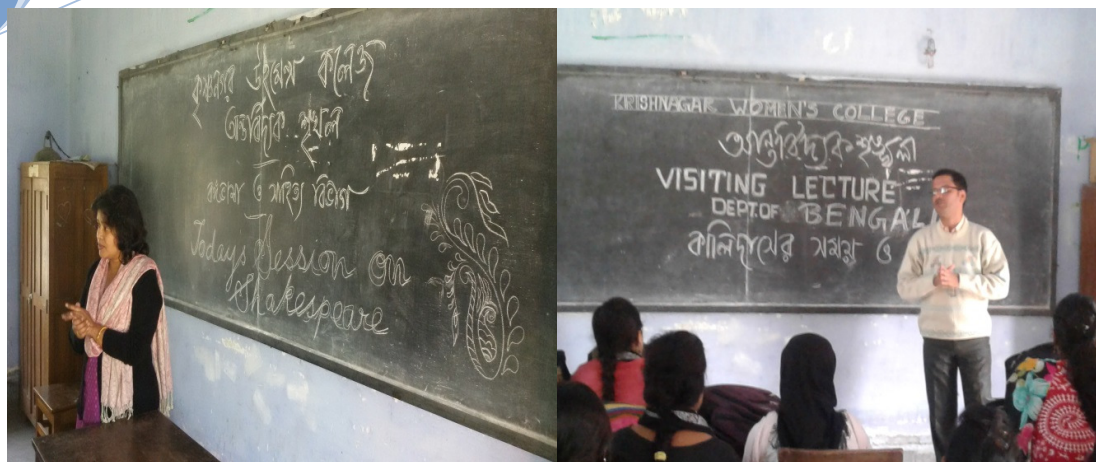 কৃষ্ণনগর উইমেন্স কলেজ
আন্তর্বিদ্যাক শৃঙ্খল
বঙ্গভাষা ও সাহিত্য বিভাগ
Todays Session on
Shakespeare
KRISHNAGAR WOMEN'S COLLEGE
আন্তর্বিদ্যাক শৃঙ্খলা
VISITING LECTURE
DEPT.OF BENGALI
কালিদাসের সময় ও